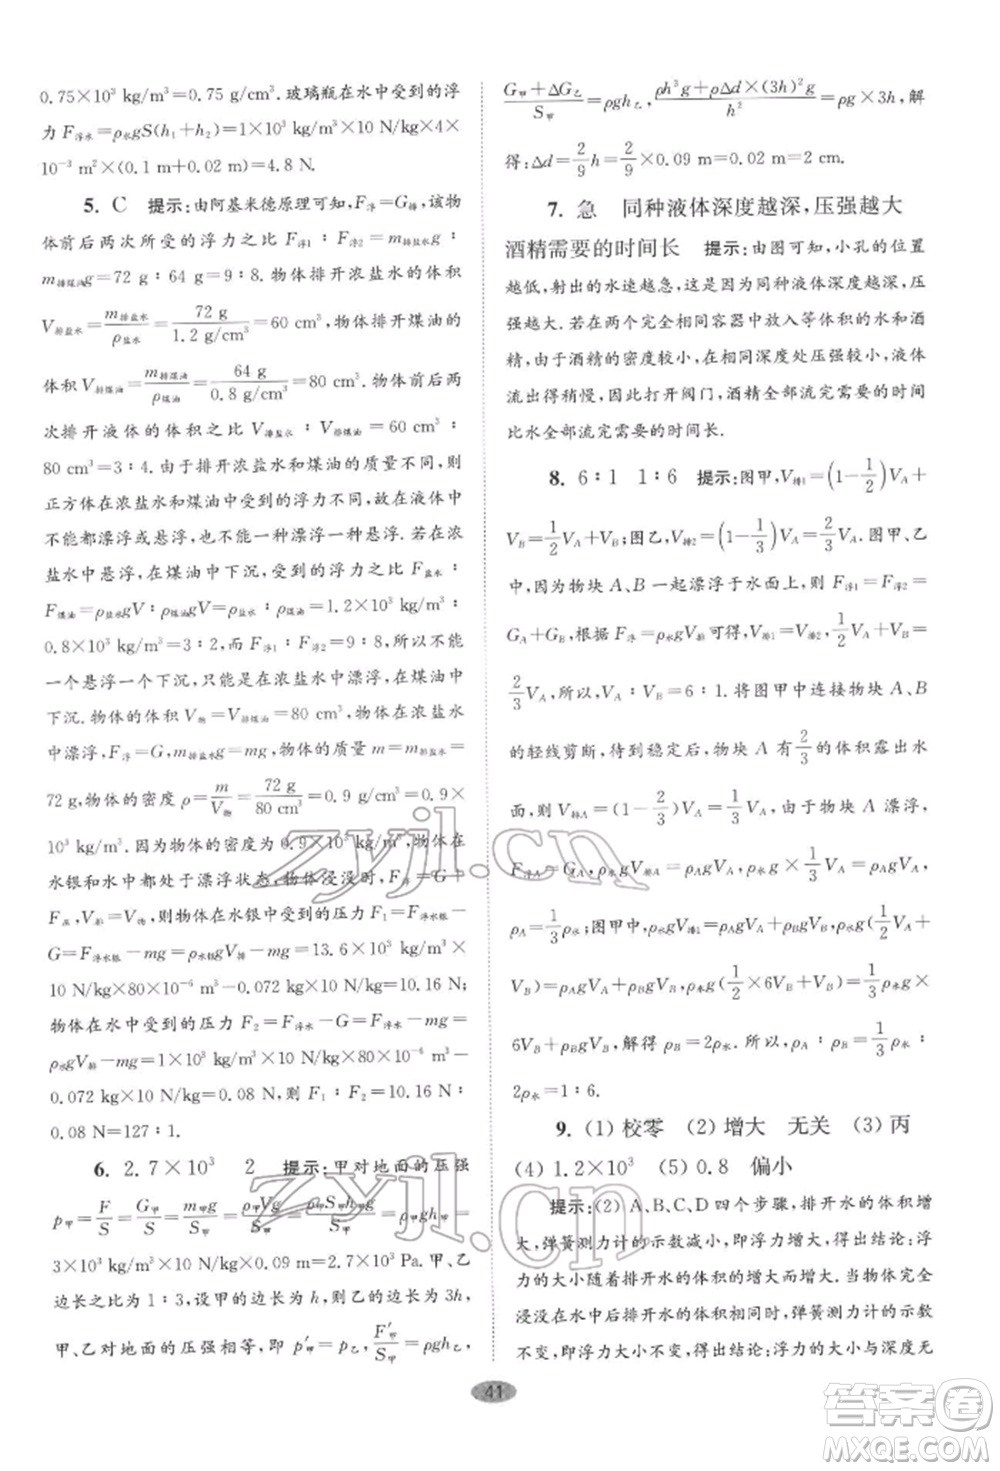 0.75×10³ kg/m³=0.75 g/cm³.玻璃瓶在水中受到的浮
力 F浮水=ρ水gS(h₁+h₂)=1×10³ kg/m³×10 N/kg×4×
10⁻³ m²×(0.1 m+0.02 m)=4.8 N.
5. C 提示:由阿基米德原理可知,F浮=G排,该物
体前后两次所受的浮力之比 F浮1∶F浮2=m排盐水g∶
m排煤油g=72 g∶64 g=9∶8.物体排开浓盐水的体积
V排盐水=m排盐水/ρ盐水=72 g/1.2 g/cm³=60 cm³,物体排开煤油的
体积 V排煤油=m排煤油/ρ煤油=64 g/0.8 g/cm³=80 cm³.物体前后两
次排开液体的体积之比 V排盐水∶V排煤油=60 cm³∶
80 cm³=3∶4.由于排开浓盐水和煤油的质量不同,则
正方体在浓盐水和煤油中受到的浮力不同,故在液体中
不能都漂浮或悬浮,有可能一个漂浮一个悬浮.若在浓
盐水中悬浮,在煤油中下沉,则两次浮力之比 F盐水∶
F煤油=ρ盐水gV∶ρ煤油gV=ρ盐水∶ρ煤油=1.2×10³∶
0.8×10³=3∶2,而 F浮1∶F浮2=9∶8,所以不能
一个悬浮一个下沉,只能在浓盐水中漂浮,在煤油
中下沉.物体的体积 V物=V排煤油=80 cm³,在浓盐水
中漂浮,F浮=G,m排盐水g=mg,物体的质量 m=m排盐水=
72 g,物体的密度 ρ=m/V物=72 g/80 cm³=0.9 g/cm³=0.9×
10³ kg/m³.因为物体的密度为 0.9×10³ kg/m³,在
水银和水中都处于漂浮状态,物体浸没时,F浮=G+
F压,V排=V物,物体在水银中受到的压力 F₁=F浮水银-
G=F浮水银-mg=ρ水银gV排-mg=13.6×10³ kg/m³×
10 N/kg×80×10⁻⁶ m³-0.072 kg×10 N/kg=10.16 N;
物体在水中受到的压力 F₂=F浮水-G=F浮水-mg=
ρ水gV排-mg=1×10³ kg/m³×10 N/kg×80×10⁻⁶ m³-
0.072 kg×10 N/kg=0.08 N,则 F₁∶F₂=10.16 N∶
0.08 N=127∶1.
6. 2.7×10³ 2 提示:甲对地面的压强
p甲=F/S=G甲/S=m甲g/S甲=ρ甲Vg/S甲=ρ甲S甲h甲g/S甲=ρ甲gh甲=
3×10³ kg/m³×10 N/kg×0.09 m=2.7×10³ Pa.甲、乙
边长之比为 1∶3,设甲的边长为 h,则乙的边长为 3h,
甲、乙对地面的压强相等,即 p′甲=p乙,F′甲/S甲=ρgh乙,
G甲+ΔG乙/S甲=ρgh乙,ρh³g+ρΔd×(3h)²g/h²=ρg×3h,解
得:Δd=2/9h=2/9×0.09 m=0.02 m=2 cm.
7. 急 同种液体深度越深,压强越大
酒精需要的时间长 提示:由图可知,小孔的位置
越低,射出的水速越急,这是因为液体深度越深,压
强越大.如果在两个完全相同容器中放入等体积的水和酒
精,由于酒精的密度较小,在相同深处压强较小,液体
流出的速度较小,因此打开阀门,酒精全部流完需要的时间
比水全部流完需要的时间长.
8. 6∶1 1∶6 提示:图甲,V排1=(1-1/2)V_A+
V_B=1/2V_A+V_B;图乙,V排2=(1-1/3)V_A=2/3V_A.图甲、乙
中,因物块 A、B 一起漂浮于水面上,则 F浮1=F浮2=
G_A+G_B,根据 F浮=ρ水gV排可得,V排1=V排2,1/2V_A+V_B=
2/3V_A,所以,V_A∶V_B=6∶1.将图甲中连接物块 A、B
的轻线剪断,待到稳定后,物块 A 有2/3的体积露出水
面,则 V排A=(1-2/3)V_A=1/3V_A,由于物块 A 漂浮,
F浮A=G_A,ρ水gV排A=ρ_AgV_A,ρ水g×1/3V_A=ρ_AgV_A,
ρ_A=1/3ρ水;图甲中,ρ水gV排1=ρ_AgV_A+ρ_BgV_B,ρ水g(1/2V_A+
V_B)=ρ_AgV_A+ρ_BgV_B,ρ水(1/2×6V_B+V_B)=1/3ρ水×
6V_B+ρ_BV_B,解得 ρ_B=2ρ水.所以,ρ_A∶ρ_B=1/3ρ水∶
2ρ水=1∶6.
9. (1) 校零 (2) 增大 无关 (3) 丙
(4) 1.2×10³ (5) 0.8 偏小
提示:(2) A、B、C、D 四个步骤,排开水的体积增
大,弹簧测力计的示数减小,即浮力增大,得出结论:浮
力的大小随着排开水的体积的增大而增大.当物体完全
浸没在水中后排开水的体积相同时,弹簧测力计的示数
不变,即浮力大小不变,得出结论:浮力大小与深度无
41
zyjl.cn
zyjl.cn
答案圈
MXQE.COM